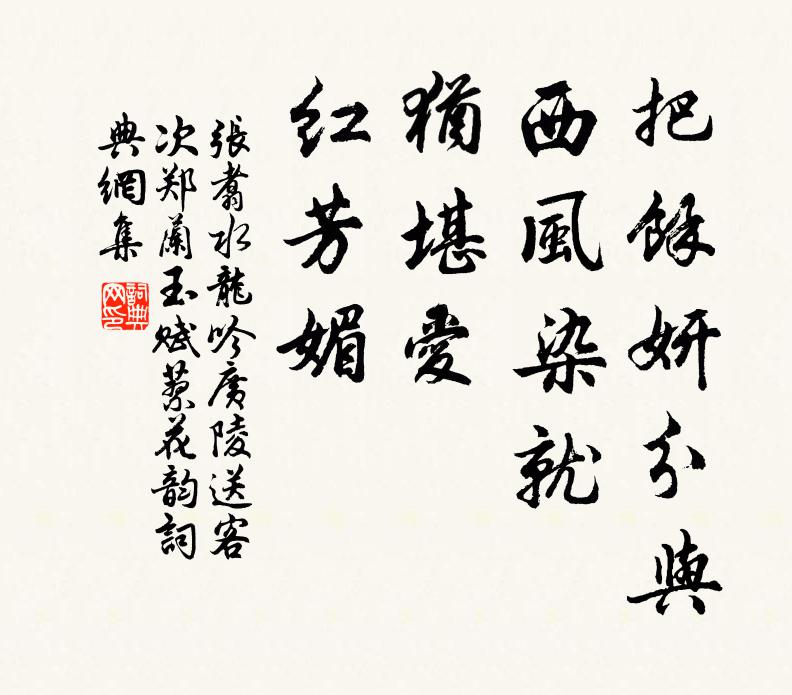 把餘妍分與
西風染就
猶堪愛
红芳媚
張翥水龍吟廣陵送客
次郑蘭玉赋蓼花韵詞
典網集
詞典網印